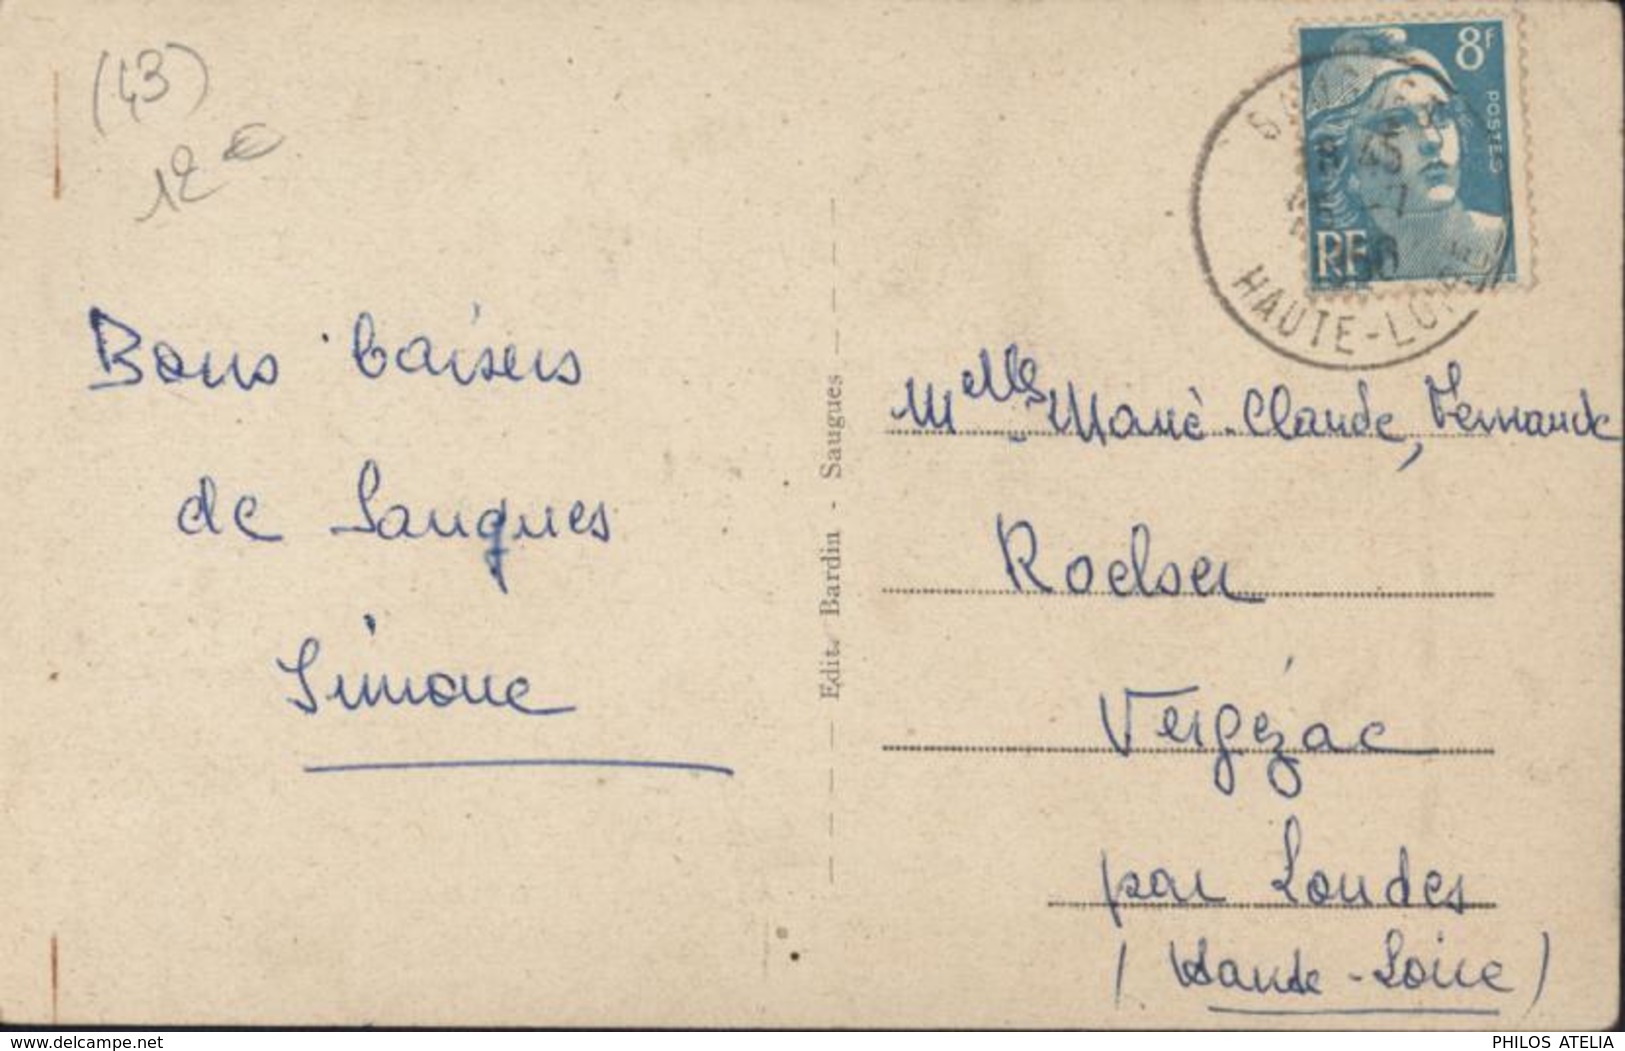 (43)
12 €
Bons baisers
de Saugues
Simone
Edit. Bardin - Saugues
8F
POSTES
RF
45
-7
HAUTE-LOIRE
Melles Marie-Claude, Fernande
Roelser
Vergézac
par Loudes
(Haute-Loire)
delcampe.net
PHILOS ATELIA